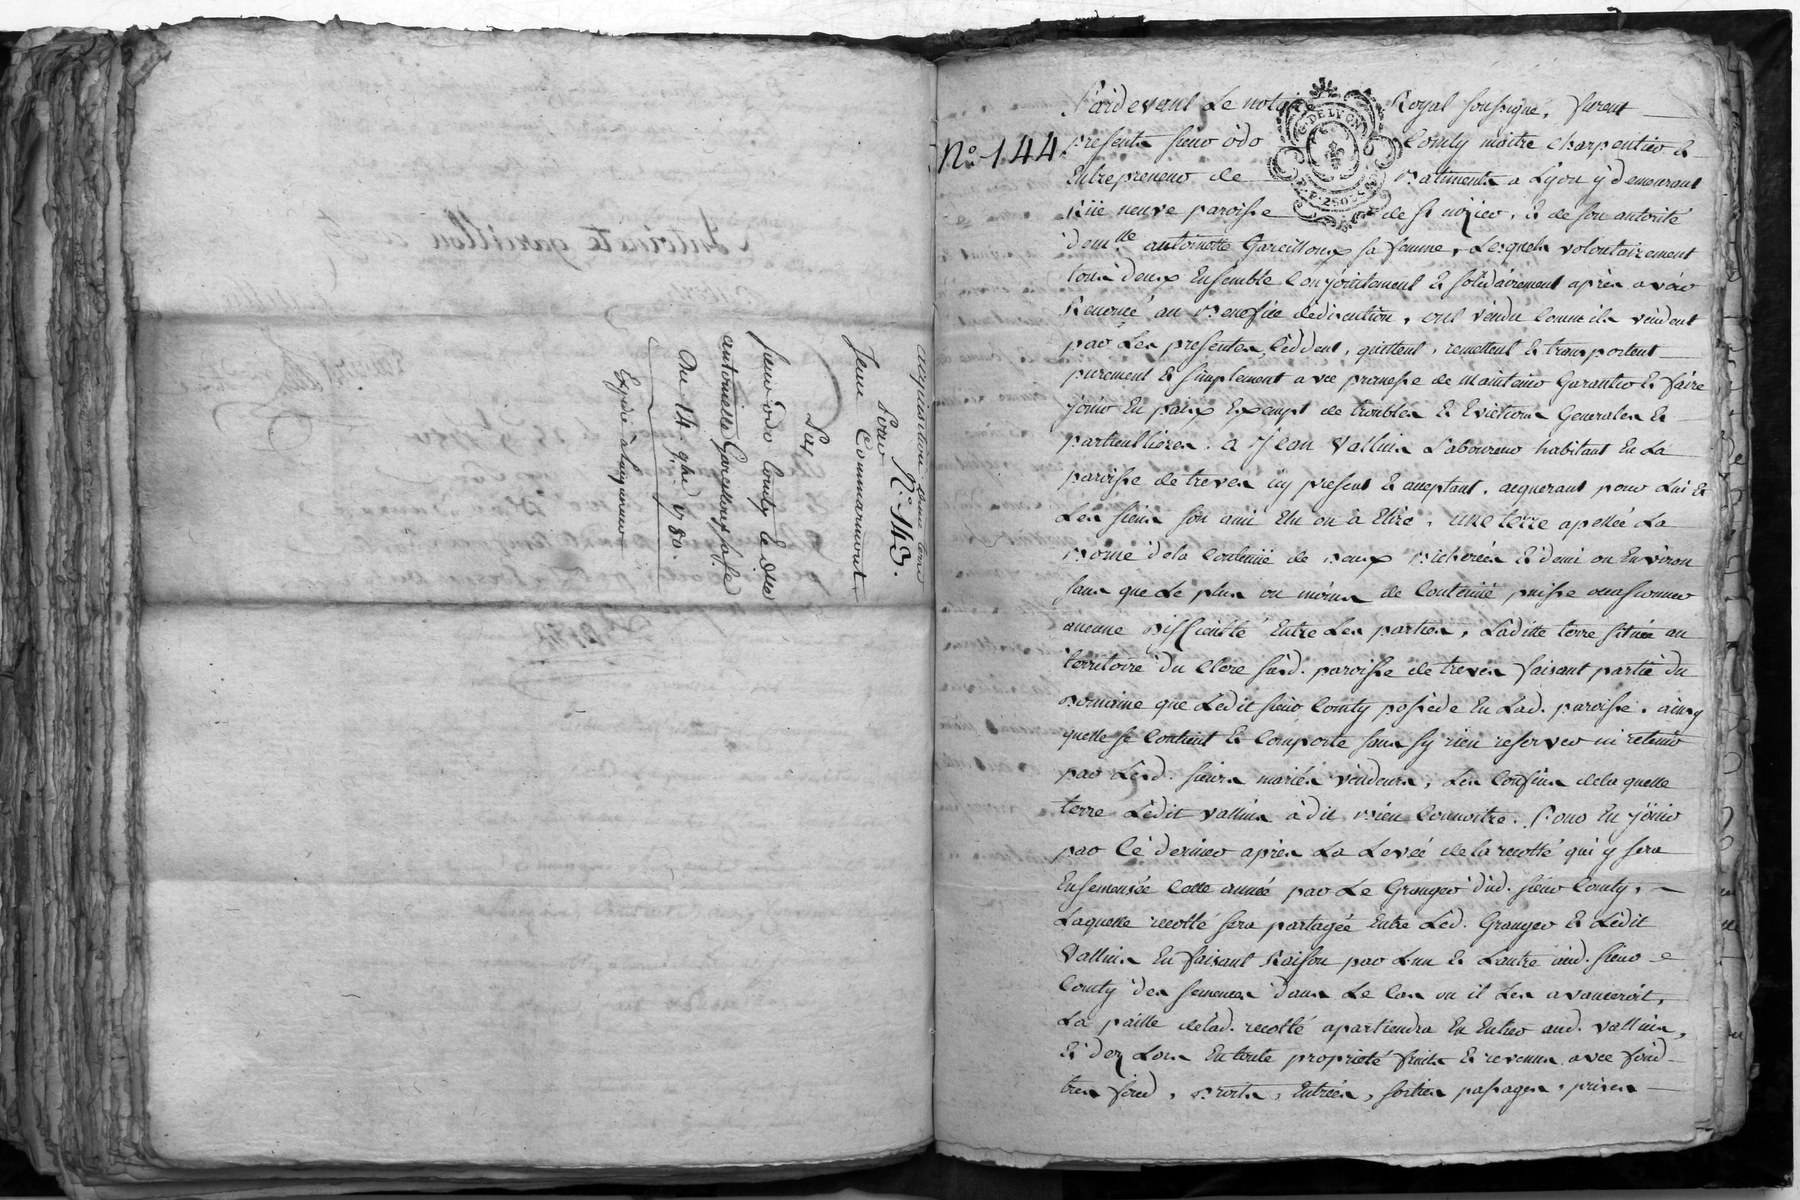 acquisition d'une terre
N.o 143.
Pour
Jean Commarmont
Par
Sieur odo Comty & d.lle
antoinette Garcilloux sa fe
Du 14. 9bre 1780.
Expédié à l'acquereur
N.o 144.
Pardevant Le notaire Royal soussigné, furent
présents sieur odo Comty maitre charpentier &
Entrepreneur de Batiments a Lyon y demeurant
Rüe neuve paroisse de st nizier, & de son autorité
dem.lle antoinette Garcilloux sa femme, Lesquels volontairement
tous deux Ensemble Conjointement & solidairement après avoir
Renoncé au Benefice de division, ont vendu comme ils vendent
par Les presentes, Ceddent, quittent, remettent & transportent
purement & simplement avec promesse de maintenir Garantir & faire
jouir En paix Exempt de troubles & Evictions Generales &
particullieres. a Jean Vallin Laboureur habitant En La
paroisse de treves icy present & acceptant. acquerant pour Lui &
Les siens son ami Elu ou à Elire, une terre apellée La
Dome de la Contenüe de Deux Bicherées & demi ou Environ
sans que Le plus ou moins de Contenüe puisse occasionner
aucune Difficulté Entre Les parties, Laditte terre située au
territoire du Clere susd. paroisse de treves faisant partie du
Domaine que Ledit sieur Comty possede En Lad. paroisse. ainsy
quelle se Contient & Comporte sans sy rien reserver ni retenir
par Lesd. sieurs mariés vendeurs, Les Confins de la quelle
terre Ledit Vallin à dit Bien Connoitre. Pour En jouir
par Ce dernier après La Levée de la recolte qui y sera
Ensemensée Cette année par Le Granger dud. sieur Comty,
Laquelle recolte sera partagée Entre Led. Granger & Ledit
Vallin En faisant Raison par L'un & L'autre aud. sieur
Comty des semences dans Le Cas ou il Les avanceroit,
La paille de lad. recolte apartiendra En Entier aud. Vallin,
& dez Lors En toute proprieté fruits & revenus avec fond
tres fond, Droits, Entrées, sorties passages, prises